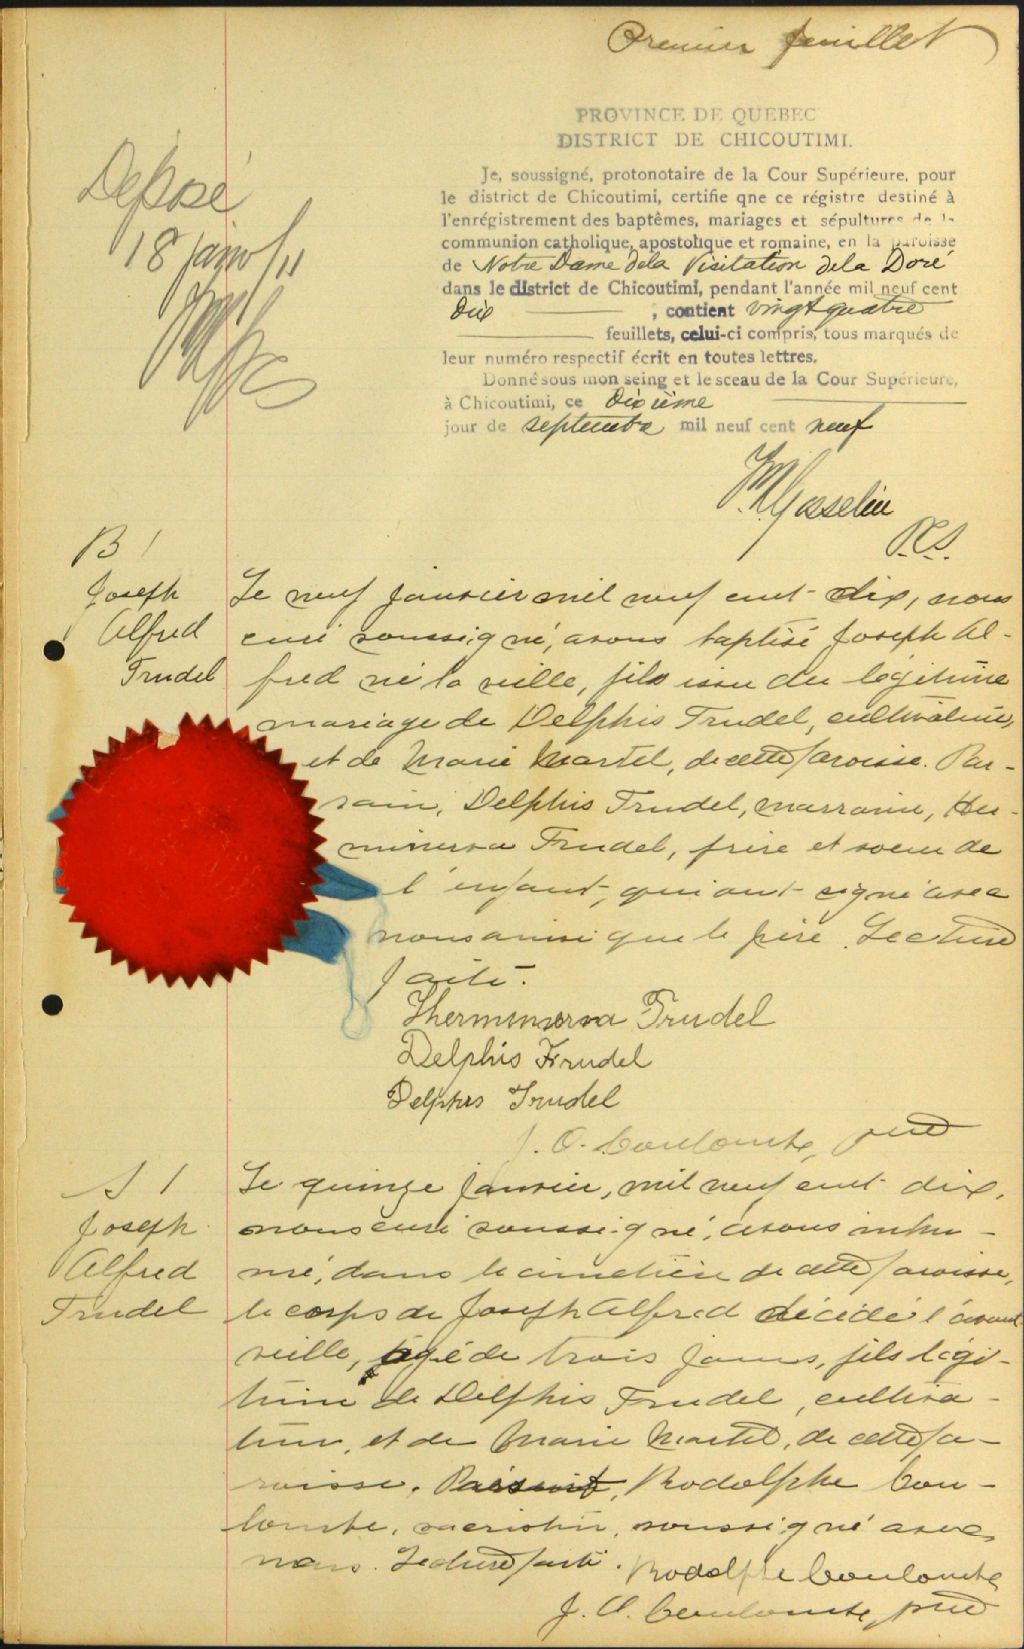 Premier feuillet
PROVINCE DE QUEBEC
DISTRICT DE CHICOUTIMI.
Je, soussigné, protonotaire de la Cour Supérieure, pour
le district de Chicoutimi, certifie qne ce régistre destiné à
l'enrégistrement des baptêmes, mariages et sépultures de la
communion catholique, apostolique et romaine, en la paroisse
de Notre Dame de la Visitation de la Doré
dans le district de Chicoutimi, pendant l'année mil neuf cent
dix ; contient vingt quatre
feuillets, celui-ci compris, tous marqués de
leur numéro respectif écrit en toutes lettres.
Donné sous mon seing et le sceau de la Cour Supérieure,
à Chicoutimi, ce dixième
jour de septembre mil neuf cent neuf
Gosselin
P.C.S.
Déposé
18 janv/11
B 1
Joseph
Alfred
Trudel
Le neuf janvier mil neuf cent dix, nous
curé soussigné, avons baptisé Joseph Al-
fred né la veille, fils issu du légitime
mariage de Delphis Trudel, cultivateur,
et de Marie Martel, de cette paroisse. Par-
rain, Delphis Trudel, marraine, Her-
minerva Trudel, frère et soeur de
l'enfant, qui ont signé avec
nous ainsi que le père. Lecture
faite.
Therminerva Trudel
Delphis Trudel
Delphis Trudel
J. O. Coulombe, ptre
S 1
Joseph
Alfred
Trudel
Le quinze janvier, mil neuf cent dix,
nous curé soussigné, avons inhu-
mé, dans le cimetière de cette paroisse,
le corps de Joseph Alfred décédé l'avant
veille, âgé de trois jours, fils légi-
time de Delphis Trudel, cultiva-
teur, et de Marie Martel, de cette pa-
roisse. Présent, Rodolphe Cou-
lombe, sacristin, soussigné avec
nous. Lecture faite. Rodolphe Coulombe
J. O. Coulombe, ptre